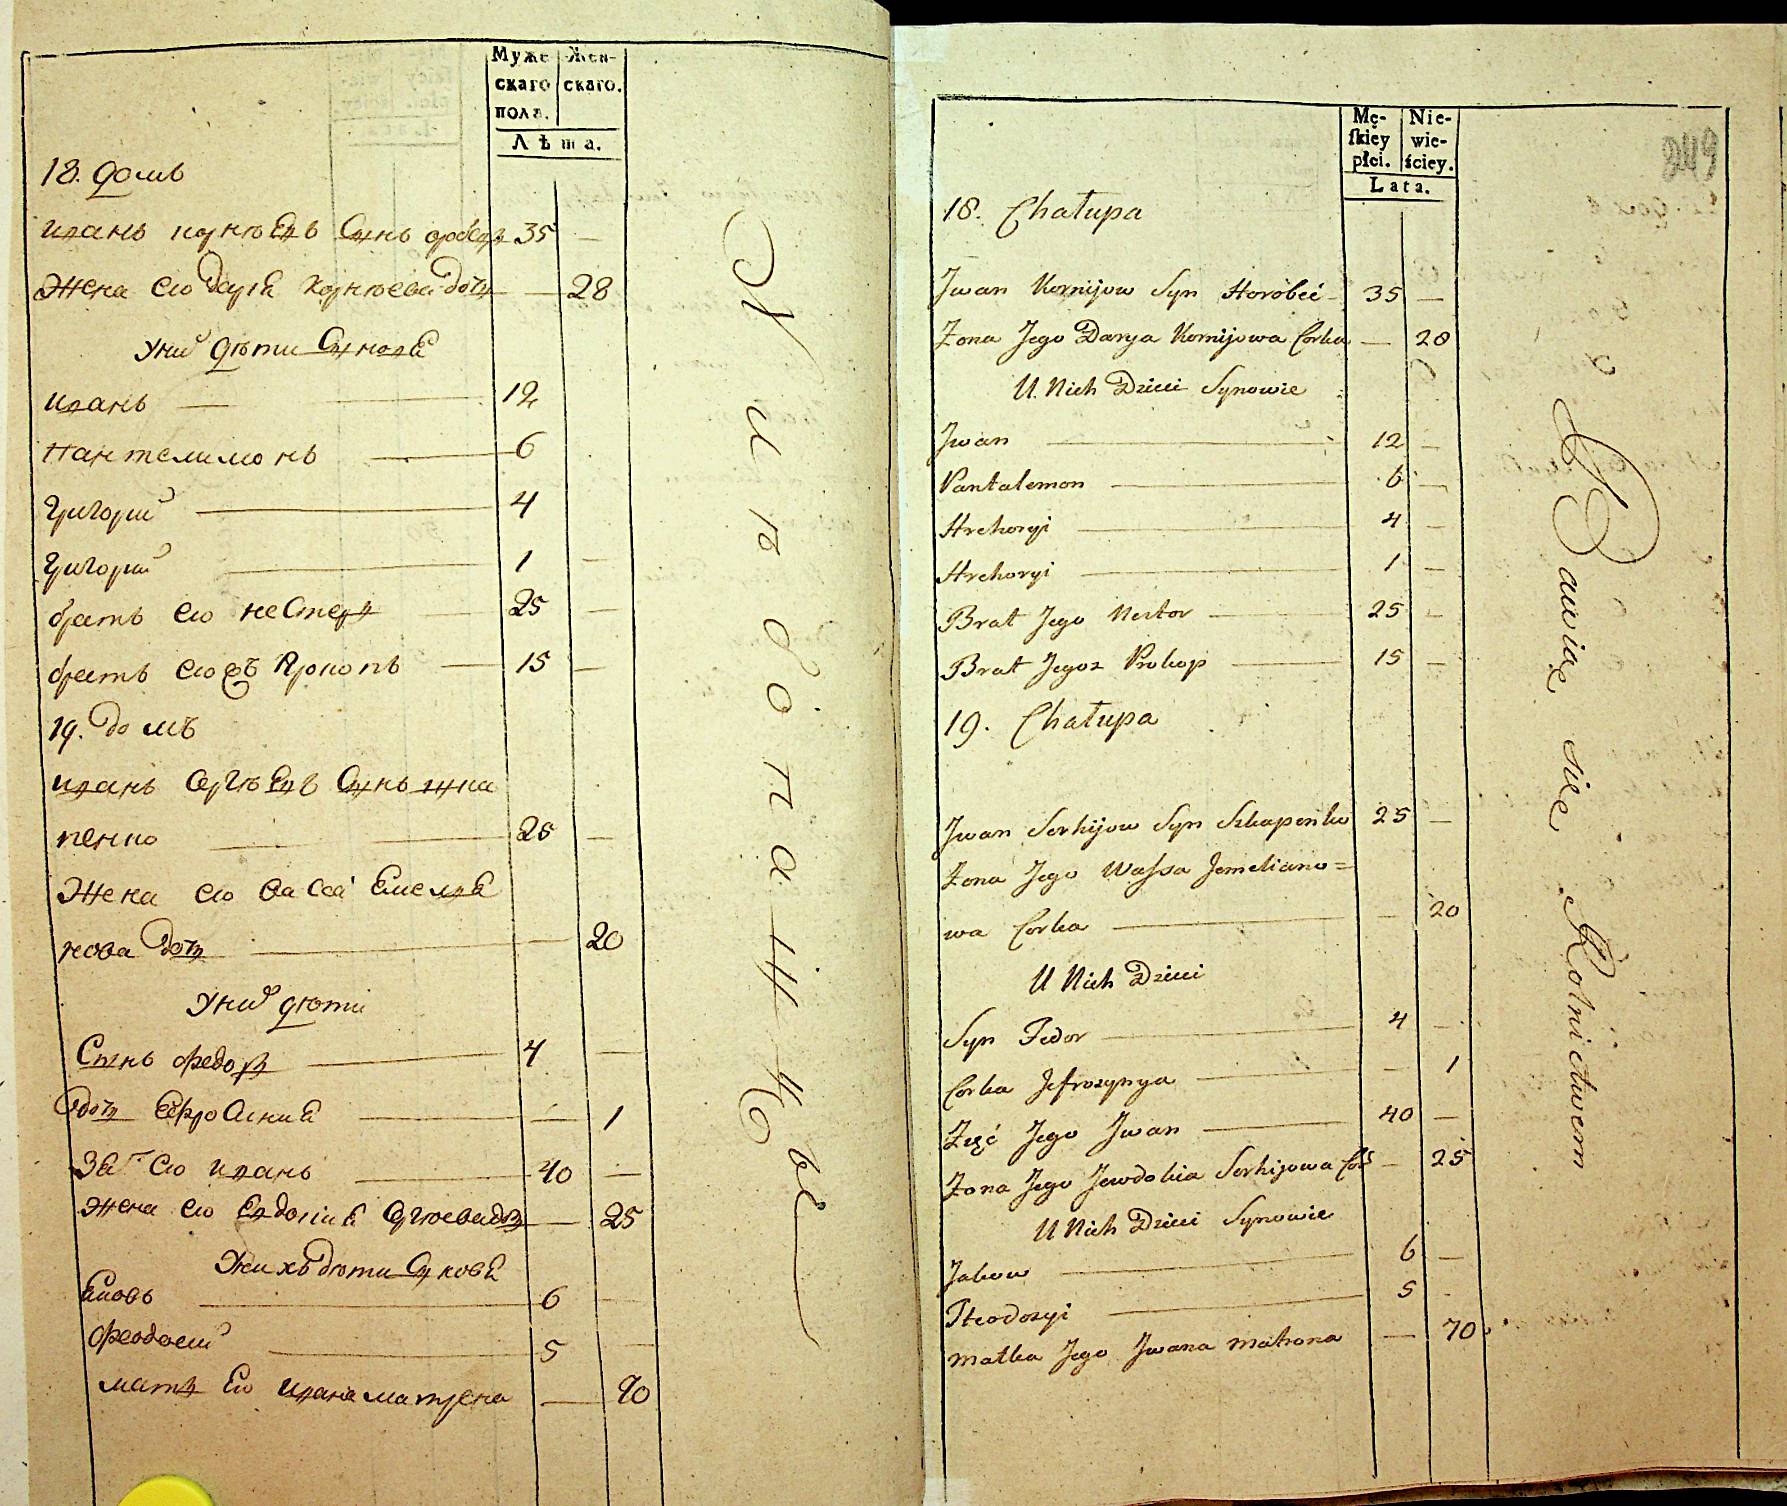 Муже
скаго
пола.
Жен-
скаго.
Лѣта.
18. домъ
иванъ корнѣевъ Сынъ 35 —
Жена его дарія корнѣева дочь — 28
У них дѣти Сыновя
иванъ — 12
пантелимонъ — 6
григорий — 4
григорий — 1 —
братъ его нестеръ — 25 —
братъ егожъ Прокопъ — 15 —
19. домъ
иванъ Сергѣевъ Сынъ шка
пенко — 25 —
Жена его васса Емелья
нова дочь — 20
У них дѣти
Сынъ федоръ — 4 —
дочь Ефросинія — 1
Зять его иванъ — 40 —
жена его Евдокия Сергѣева дочь — 25
У нихъ дѣти Сыновя
Яковъ — 6 —
феодосий — 5 —
мать Его ивана матрена — 70
Хлебопашцы
Mę-
ſkiey
płci.
Nie-
wie-
ściey.
Lata.
249
18. Chałupa
Jwan Kornijow Syn Horobeć — 35 —
Żona Jego Darya Kornijowa Corka — 28
U Nich Dzieci Synowie
Jwan — 12 —
Pantalemon — 6 —
Hrehoryi — 4 —
Hrehoryi — 1 —
Brat Jego Nestor — 25 —
Brat Jegoż Prokop — 15 —
19. Chałupa
Jwan Serhijow Syn Szkapenko 25 —
Żona Jego Waſsa Jemeliano=
wa Corka — 20
U Nich Dzieci
Syn Fedor — 4 —
Corka Jefrozynya — 1
Zięć Jego Jwan — 40 —
Żona Jego Jewdokia Serhijowa Cor — 25
U Nich Dzieci Synowie
Jakow — 6 —
Theodozyi — 5 -
Matka Jego Jwana Matrona — 70
Bawią się Rolnictwem